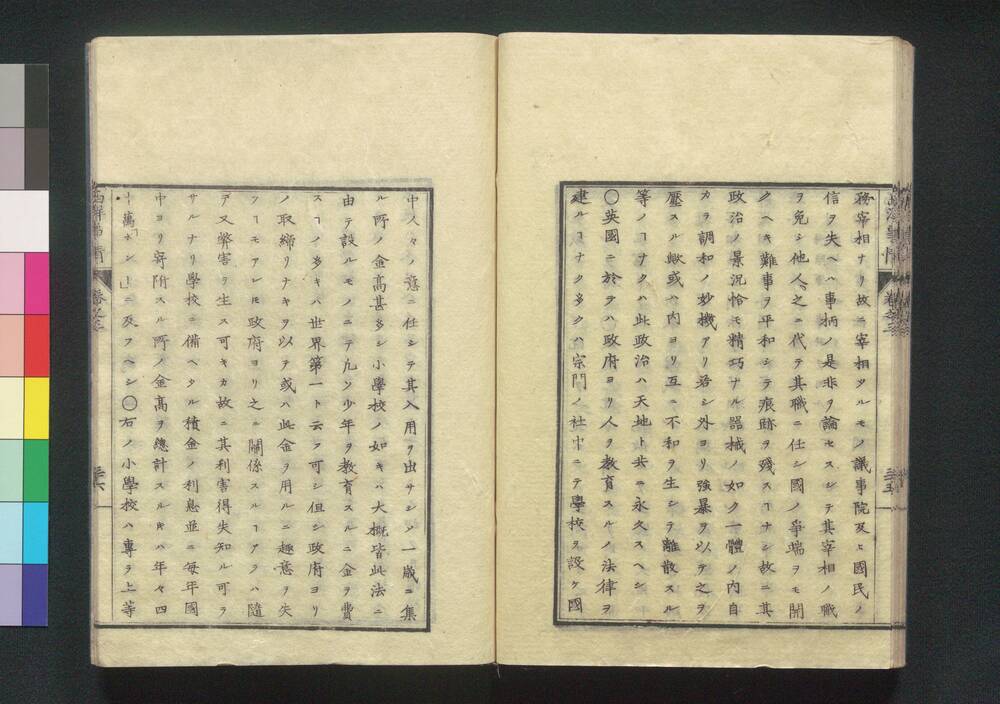 務宰相ナリ故ニ宰相タルモノ議事院及ヒ國民ノ
信ヲ失ヘハ事柄ノ是非ヲ論セスシテ其宰相ノ職
ヲ免シ他人之ニ代テ其職ニ任シ國ノ爭端ヲモ開
クヘキ難事ヲ平和シテ痕跡ヲ殘スヿナシ故ニ其
政治ノ景況恰モ精巧ナル器械ノ如ク一體ノ内自
カラ調和ノ妙機アリ若シ外ヨリ強暴ヲ以テ之ヲ
壓スル歟或ハ内ヨリ互ニ不和ヲ生シテ離散スル
等ノヿナクハ此政治ハ天地ト共ニ永久スヘシ
〇英國ニ於テハ政府ヨリ人ヲ教育スルノ法律ヲ
建ルヿナク多クハ宗門ノ社中ニテ學校ヲ設ケ國
中人々ノ意ニ任シテ其入用ヲ出サシム一歳ニ集
ル所ノ金高甚多シ小學校ノ如キハ大概皆此法ニ
由テ設ルモノニテ凡ソ少年ヲ教育スルニ金ヲ費
スヿノ多キハ世界第一ト云フ可シ但シ政府ヨリ
ノ取締リナキヲ以テ或ハ此金ヲ用ルニ趣意ヲ失
フヿモアレ𪜈政府ヨリ之ニ關係スルヿアラハ隨
テ又弊害ヲ生ス可キカ故ニ其利害得失知ル可ラ
サルナリ學校ニ備ヘタル積金ノ利息並ニ每年國
中ヨリ寄附スル所ノ金高ヲ總計スル𪜈ハ年々四
十萬ポンドニ及フヘシ〇右ノ小學校ハ專ラ上等
卷之三